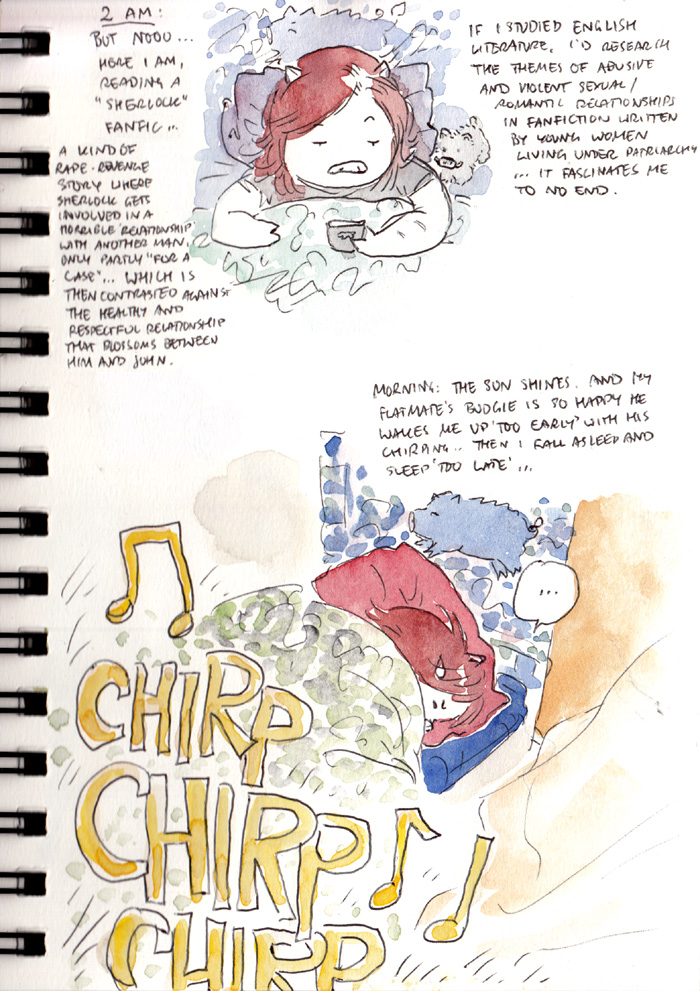 2 AM:
BUT NOOO...
HERE I AM,
READING A
"SHERLOCK"
FANFIC...
A KIND OF
RAPE-REVENGE
STORY WHERE
SHERLOCK GETS
INVOLVED IN A
HORRIBLE RELATIONSHIP
WITH ANOTHER MAN,
ONLY PARTLY "FOR A
CASE"... WHICH IS
THEN CONTRASTED AGAINST
THE HEALTHY AND
RESPECTFUL RELATIONSHIP
THAT BLOSSOMS BETWEEN
HIM AND JOHN.
IF I STUDIED ENGLISH
LITERATURE, I'D RESEARCH
THE THEMES OF ABUSIVE
AND VIOLENT SEXUAL/
ROMANTIC RELATIONSHIPS
IN FANFICTION WRITTEN
BY YOUNG WOMEN
LIVING UNDER PATRIARCHY
... IT FASCINATES ME
TO NO END.
MORNING: THE SUN SHINES. AND MY
FLATMATE'S BUDGIE IS SO HAPPY HE
WAKES ME UP 'TOO EARLY' WITH HIS
CHIRPING... THEN I FALL ASLEEP AND
SLEEP 'TOO LATE'...
...
CHIRP
CHIRP
CHIRP